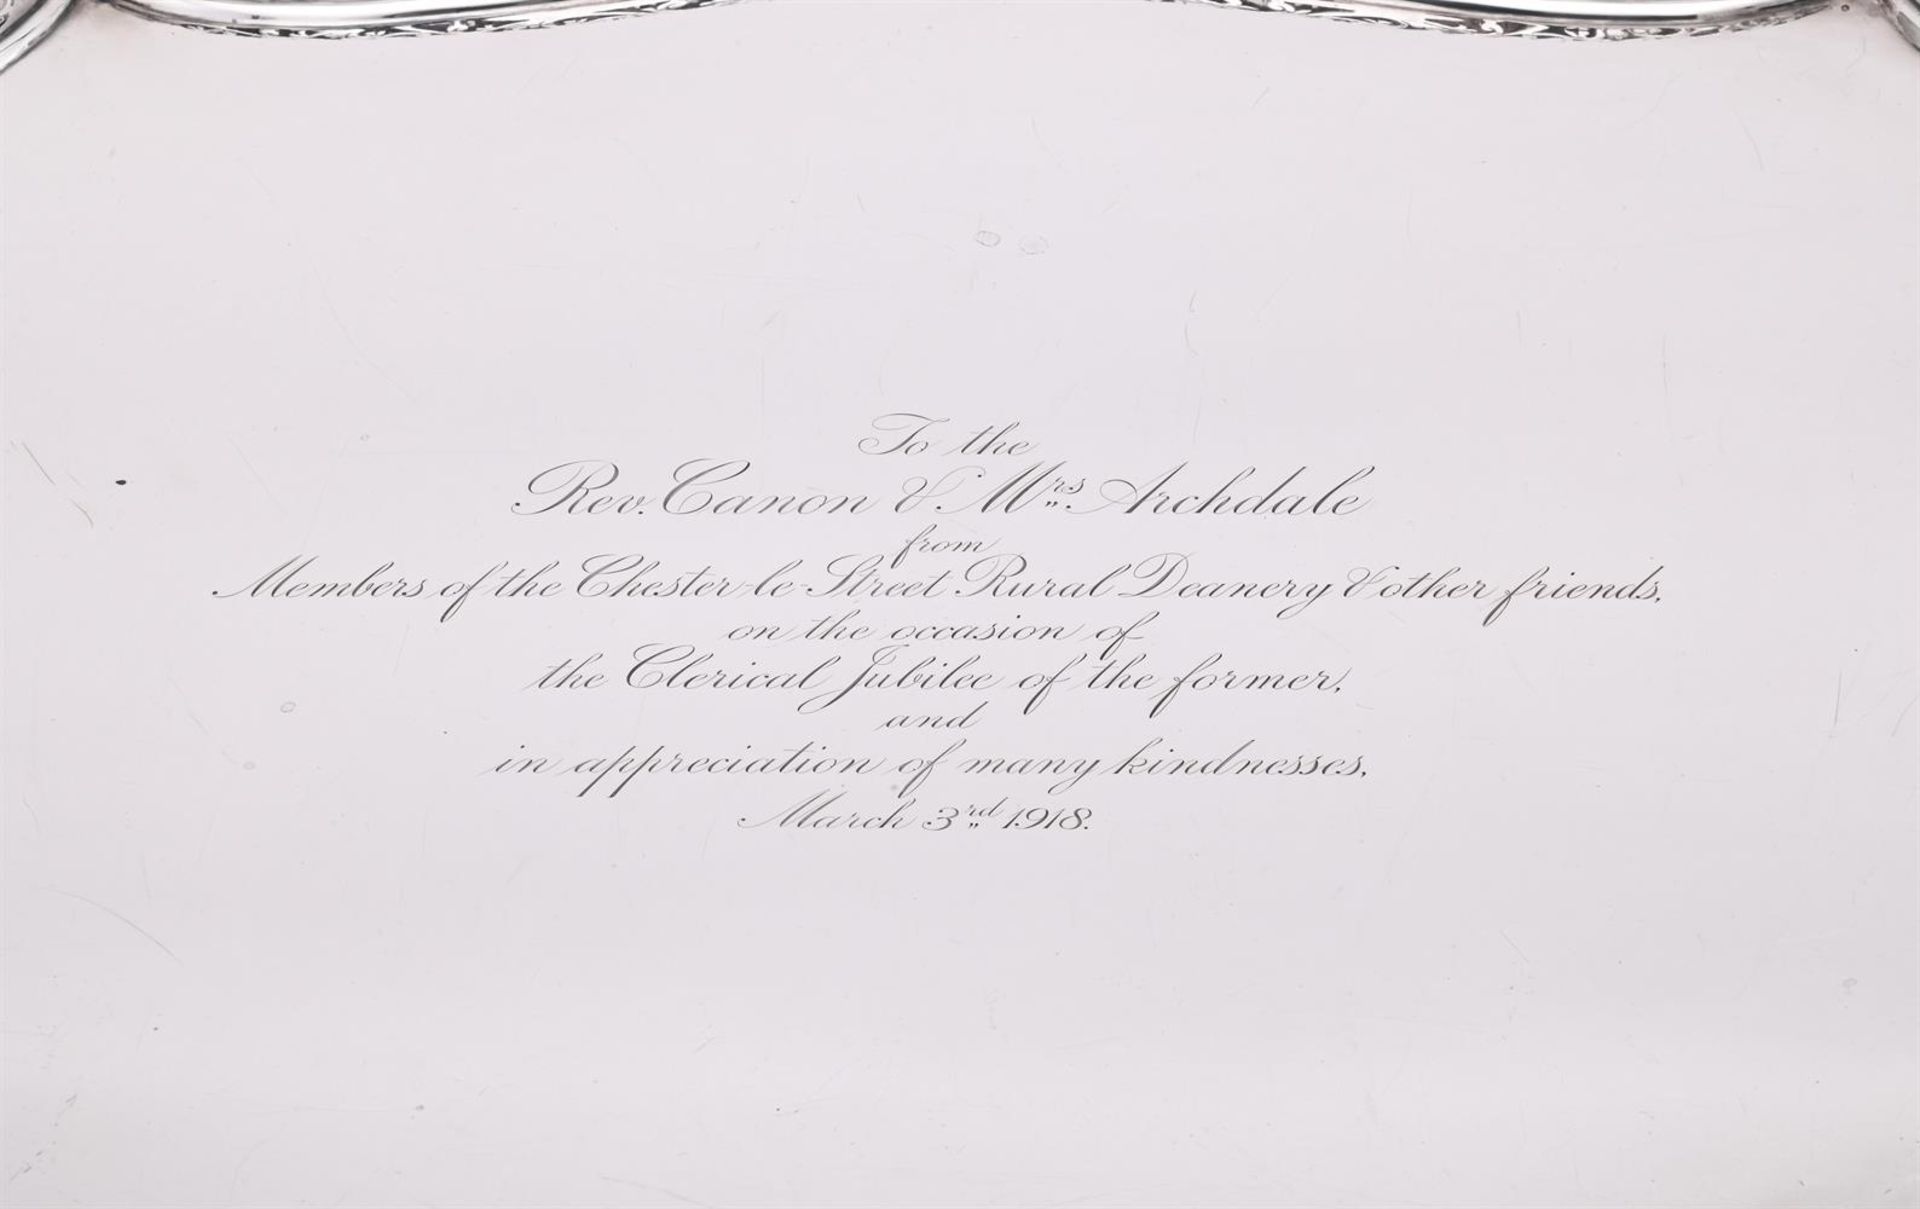 To the
Rev. Canon & Mrs. Archdale
from
Members of the Chester-le-Street Rural Deanery & other friends,
on the occasion of
the Clerical Jubilee of the former,
and
in appreciation of many kindnesses,
March 3rd 1918.